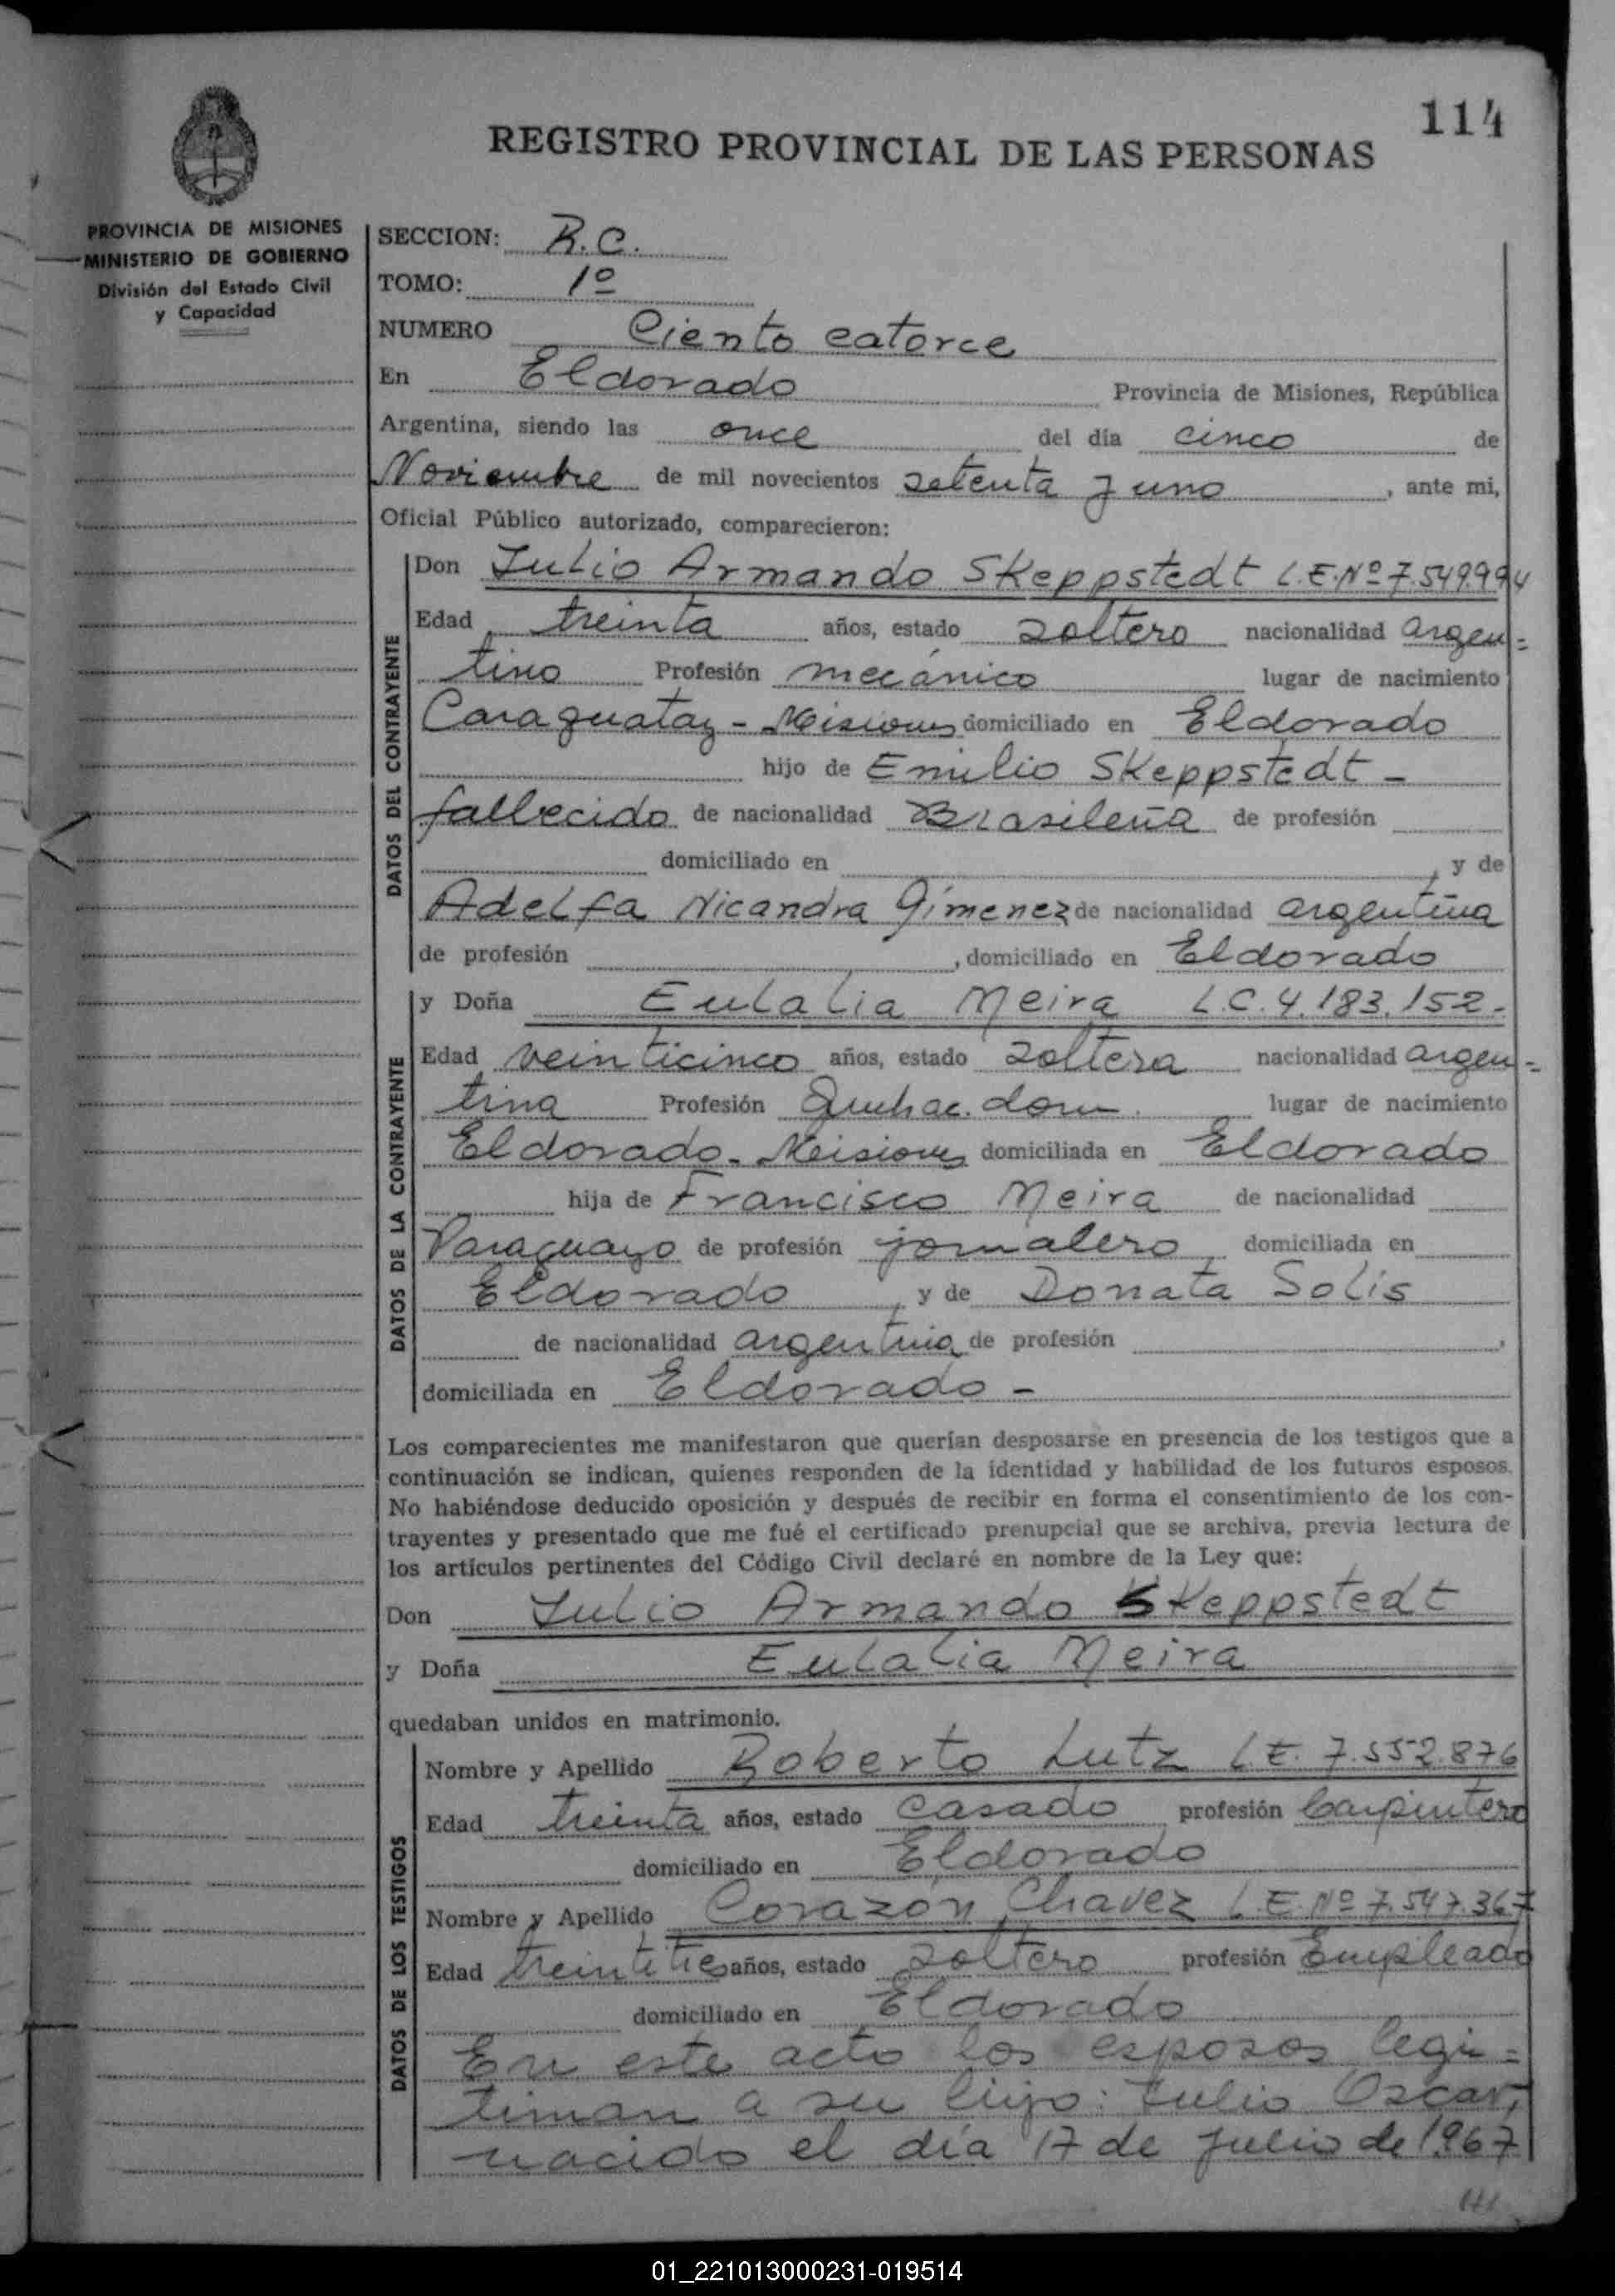 114
REGISTRO PROVINCIAL DE LAS PERSONAS
PROVINCIA DE MISIONES
MINISTERIO DE GOBIERNO
División del Estado Civil
y Capacidad
SECCION: R.C.
TOMO: 1º
NUMERO Ciento catorce
En Eldorado Provincia de Misiones, República
Argentina, siendo las once del día cinco de
Noviembre de mil novecientos setenta y uno, ante mi,
Oficial Público autorizado, comparecieron:
DATOS DEL CONTRAYENTE
Don Julio Armando Skeppstedt L.E.Nº 7.549.994
Edad treinta años, estado soltero nacionalidad argen=
tino Profesión mecánico lugar de nacimiento
Caraguatay - Misiones domiciliado en Eldorado
hijo de Emilio Skeppstedt -
fallecido de nacionalidad Brasileña de profesión
domiciliado en , y de
Adelfa Nicandra Gimenez de nacionalidad argentina
de profesión , domiciliado en Eldorado
DATOS DE LA CONTRAYENTE
y Doña Eulalia Meira L.C. 4.183.152.-
Edad veinticinco años, estado soltera nacionalidad argen=
tina Profesión Quehac. dom. lugar de nacimiento
Eldorado - Misiones domiciliada en Eldorado
hija de Francisco Meira de nacionalidad
Paraguayo de profesión jornalero domiciliada en
Eldorado, y de Donata Solis
de nacionalidad argentina de profesión ,
domiciliada en Eldorado -
Los comparecientes me manifestaron que querían desposarse en presencia de los testigos que a
continuación se indican, quienes responden de la identidad y habilidad de los futuros esposos.
No habiéndose deducido oposición y después de recibir en forma el consentimiento de los con-
trayentes y presentado que me fué el certificado prenupcial que se archiva, previa lectura de
los artículos pertinentes del Código Civil declaré en nombre de la Ley que:
Don Julio Armando Skeppstedt
y Doña Eulalia Meira
quedaban unidos en matrimonio.
DATOS DE LOS TESTIGOS
Nombre y Apellido Roberto Lutz L.E. 7.552.876
Edad treinta años, estado casado profesión Carpintero
domiciliado en Eldorado
Nombre y Apellido Corazón Chavez L.E.Nº 7.547.367
Edad treintitres años, estado soltero profesión Empleado
domiciliado en Eldorado
En este acto los esposos legi=
timan a su hijo: Julio Oscar,
nacido el día 17 de julio de 1967
01_221013000231-019514